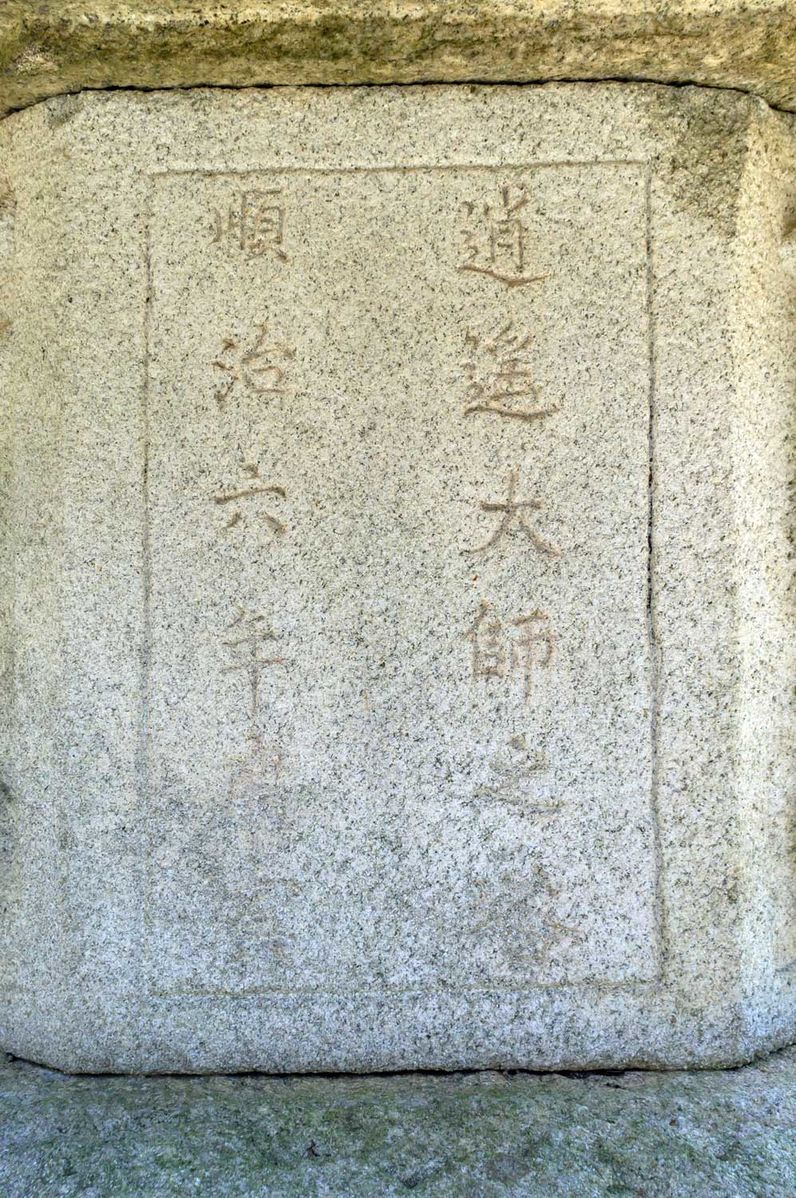 逍遙大師之
順治六年